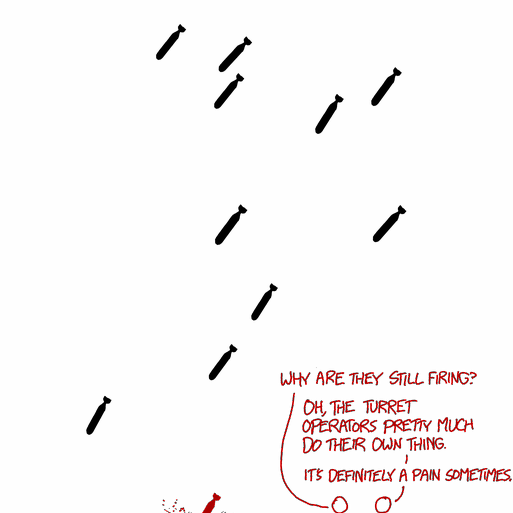 WHY ARE THEY STILL FIRING?
OH, THE TURRET
OPERATORS PRETTY MUCH
DO THEIR OWN THING.
IT'S DEFINITELY A PAIN SOMETIMES.